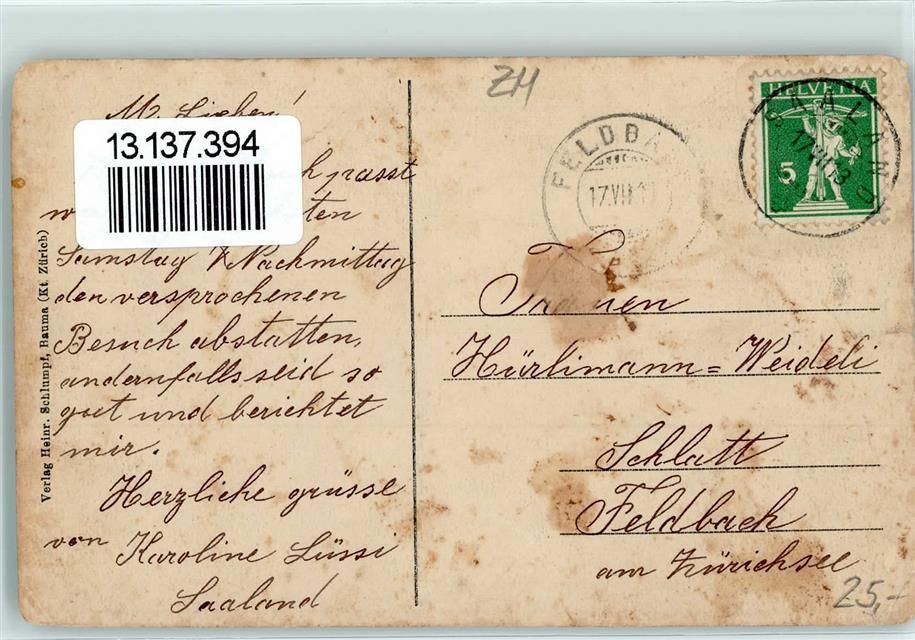 M. Lieben!
13.137.394
passt
ten
Samstag Nachmittag
den versprochenen
Besuch abstatten,
andernfalls seid so
gut und berichtet
mir.
Herzliche grüsse
von Karoline Lüssi
Saaland
Verlag Heinr. Schlumpf, Bauma (Kt. Zürich)
ZH
FELDBA
17.VII.1
HELVETIA
5
SAALAND
17.VII.13
Hürlimann=Weideli
Schlatt
Feldbach
am Zürichsee
25,-